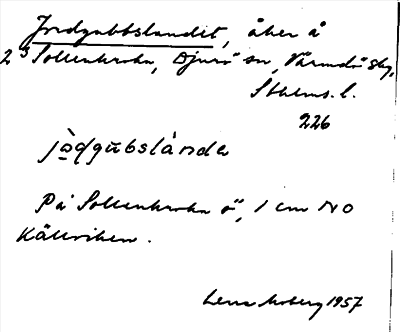 Jordgubbslandet, åker å
2³ Sollenkroka, Djurö sn, Värmdö skg,
Sthlms. l.
226
jo̱ɖgu̇bslànde
På Sollenkroka ö, 1 cm NO
Källviken.
Lena Moberg 1957